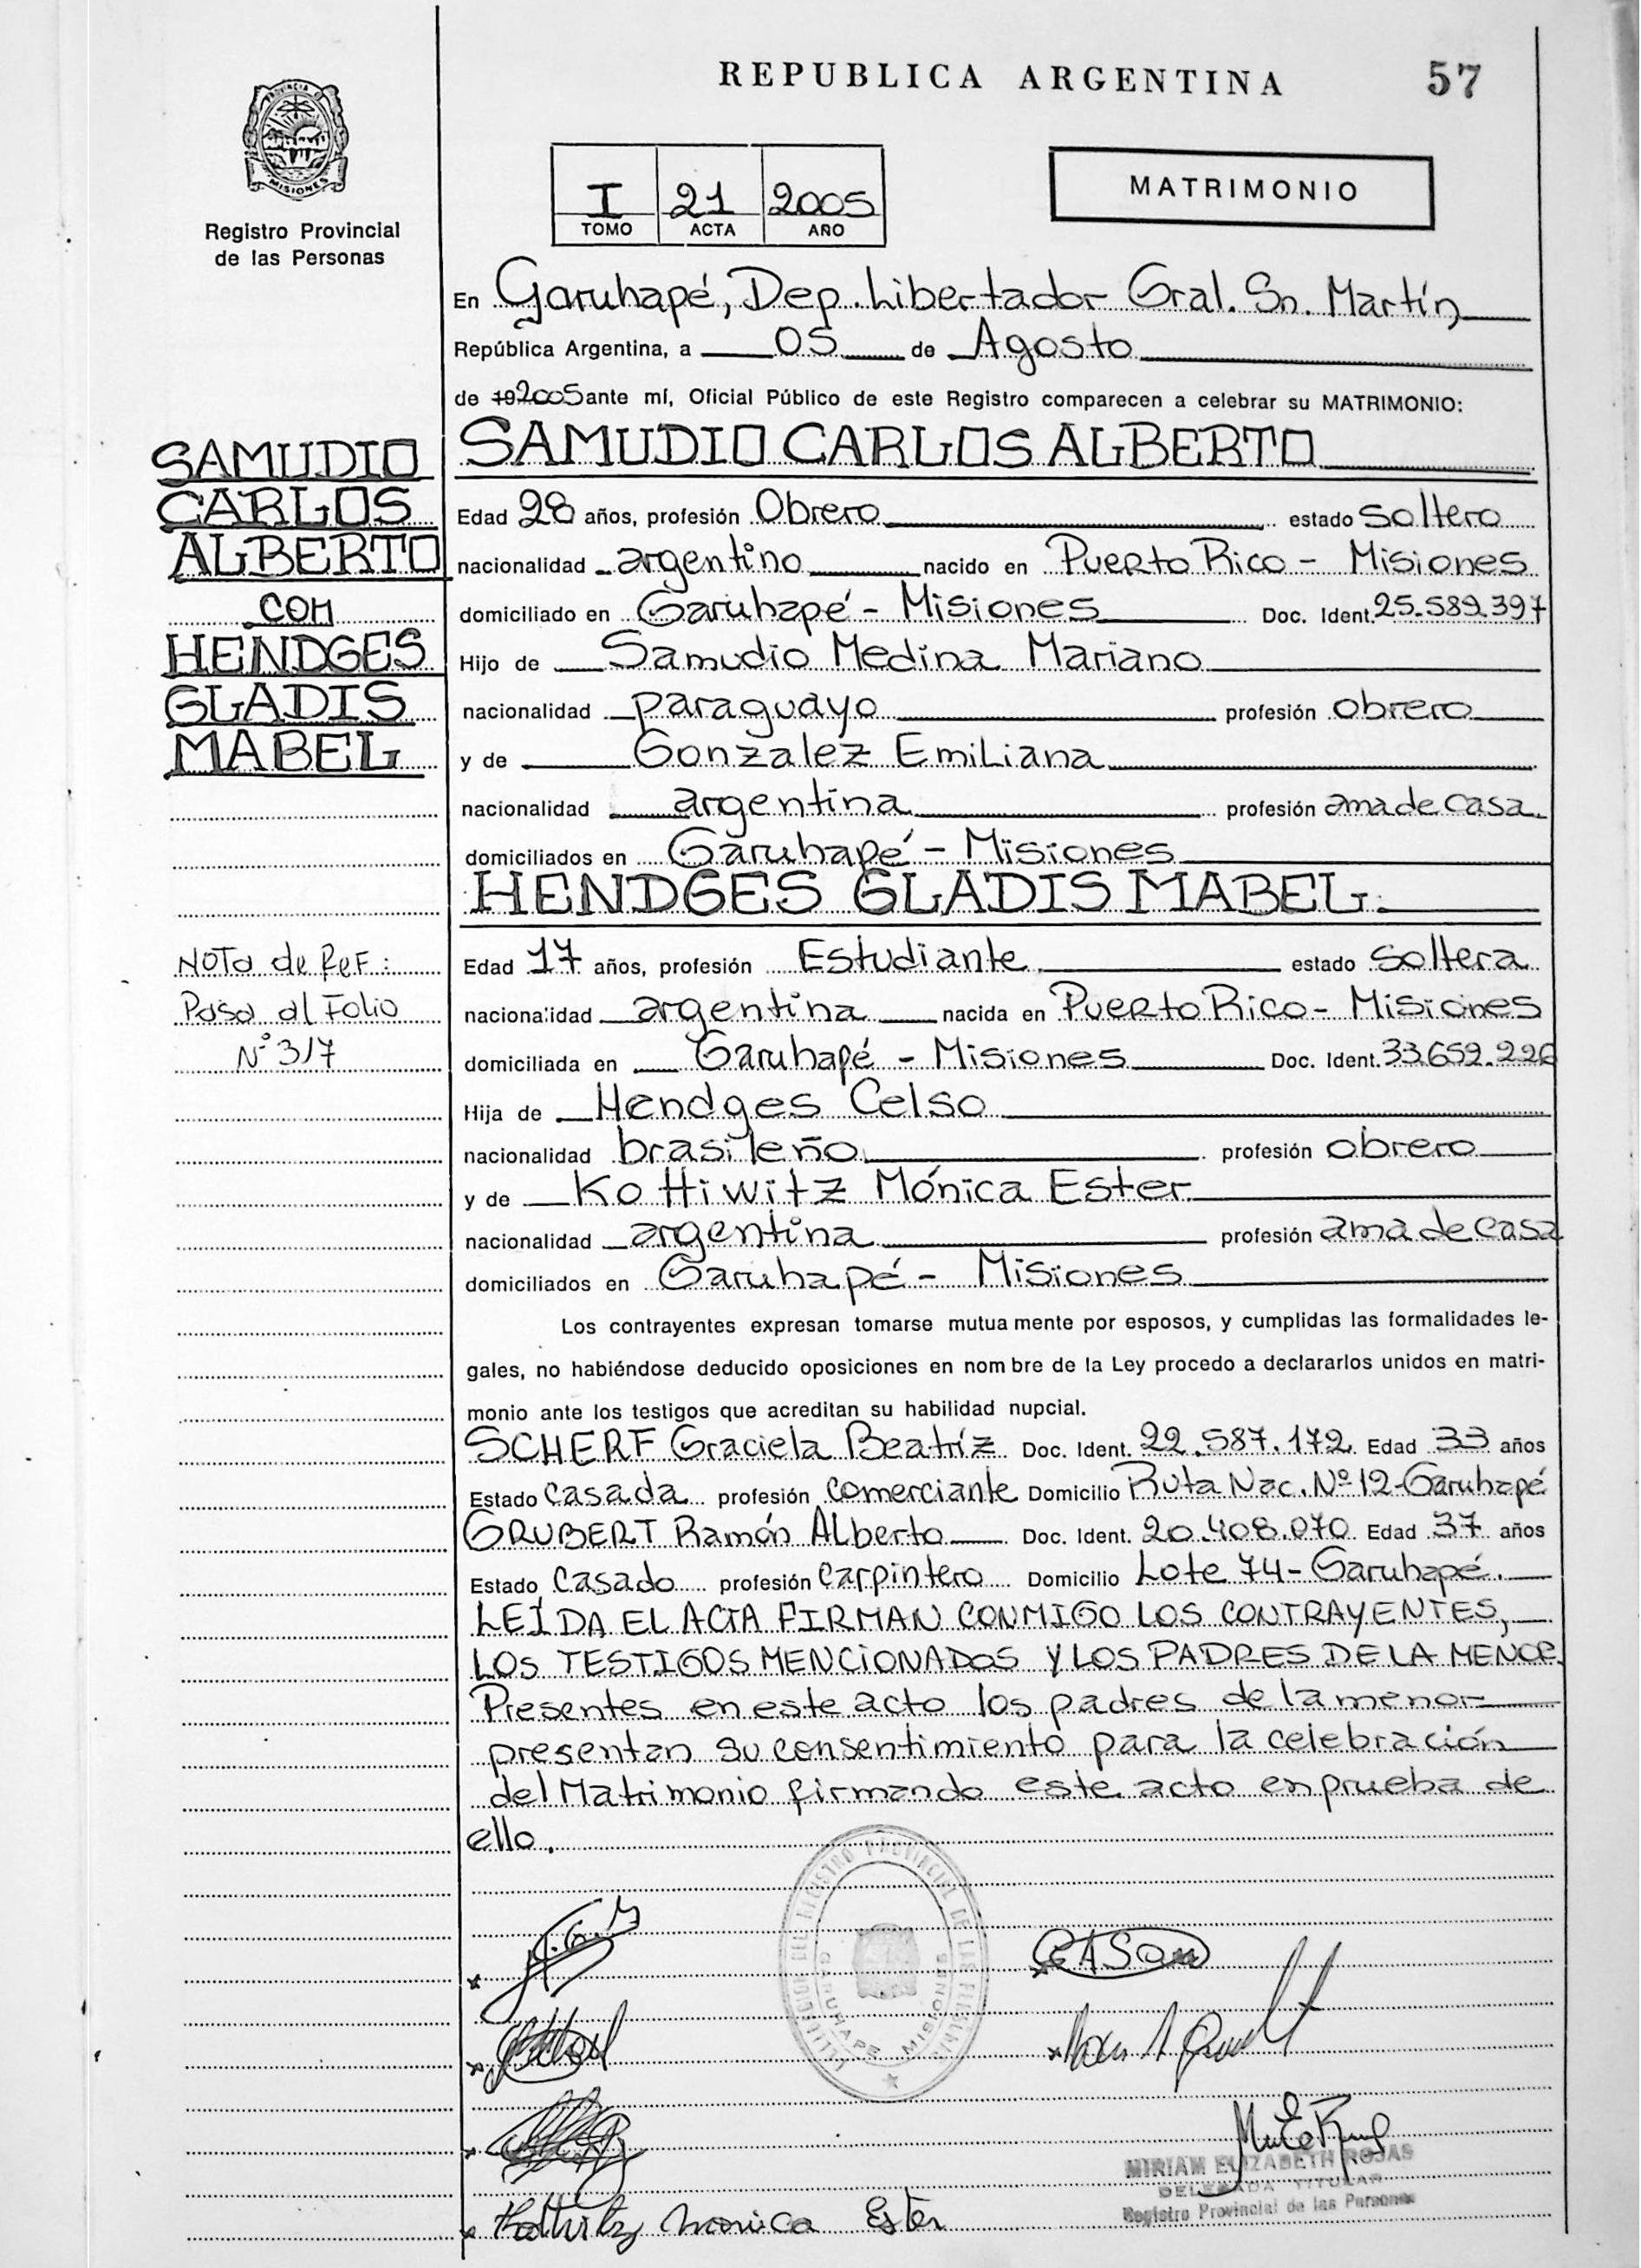 REPUBLICA ARGENTINA 57
PROVINCIA D MISIONES
Registro Provincial
de las Personas
I 21 2005
TOMO ACTA AÑO
MATRIMONIO
En Garuhapé, Dep. Libertador Gral. Sn. Martín
República Argentina, a 05 de Agosto
de 19 2005 ante mí, Oficial Público de este Registro comparecen a celebrar su MATRIMONIO:
SAMUDIO
CARLOS
ALBERTO
CON
HENDGES
GLADIS
MABEL
NOTA de REF:
Pasa al Folio
Nº 317
SAMUDIO CARLOS ALBERTO
Edad 28 años, profesión Obrero estado Soltero
nacionalidad argentino nacido en Puerto Rico - Misiones
domiciliado en Garuhapé - Misiones Doc. Ident. 25.589.397
Hijo de Samudio Medina Mariano
nacionalidad paraguayo profesión obrero
y de Gonzalez Emiliana
nacionalidad argentina profesión ama de casa.
domiciliados en Garuhapé - Misiones
HENDGES GLADIS MABEL.
Edad 17 años, profesión Estudiante estado Soltera
nacionalidad argentina nacida en Puerto Rico - Misiones
domiciliada en Garuhapé - Misiones Doc. Ident. 33.659.226
Hija de Hendges Celso
nacionalidad brasileño profesión obrero
y de Kottiwitz Mónica Ester
nacionalidad argentina profesión ama de casa
domiciliados en Garuhapé - Misiones
Los contrayentes expresan tomarse mutua mente por esposos, y cumplidas las formalidades le-
gales, no habiéndose deducido oposiciones en nom bre de la Ley procedo a declararlos unidos en matri-
monio ante los testigos que acreditan su habilidad nupcial.
SCHERF Graciela Beatríz Doc. Ident. 22.587.172 Edad 33 años
Estado Casada profesión comerciante Domicilio Ruta Nac. Nº 12-Garuhapé
GRUBERT Ramón Alberto Doc. Ident. 20.408.070 Edad 37 años
Estado Casado profesión Carpintero Domicilio Lote 74 - Garuhapé.
LEÍDA EL ACTA FIRMAN CONMIGO LOS CONTRAYENTES,
LOS TESTIGOS MENCIONADOS Y LOS PADRES DE LA MENOR.
Presentes en este acto los padres de la menor
presentan su consentimiento para la celebración
del Matrimonio firmando este acto en prueba de
ello.
DEL REGISTRO PROVINCIAL DE LAS PERSONAS
GARUHAPE MISIONES
MIRIAM ELIZABETH ROJAS
DELEGADA TITULAR
Registro Provincial de las Personas
Monica Ester